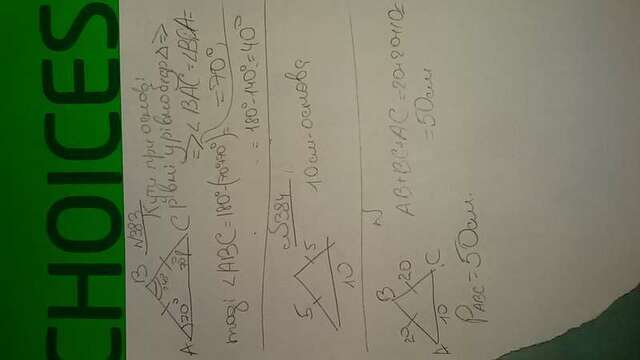 CHOICES
№383
Кути при основі
рівні у рівнобедр Δ =>
=> ∠BAC = ∠BCA =
= 70°,
B
140°
A 70° 70° C
тоді ∠ABC = 180° - (70°+70°) =
= 180° - 140° = 40°
№384
5 5
10
10 см - основа
B
20 20
A 10 C
AB + BC + AC = 20 + 20 + 10 =
= 50 см
P ABC = 50 см.